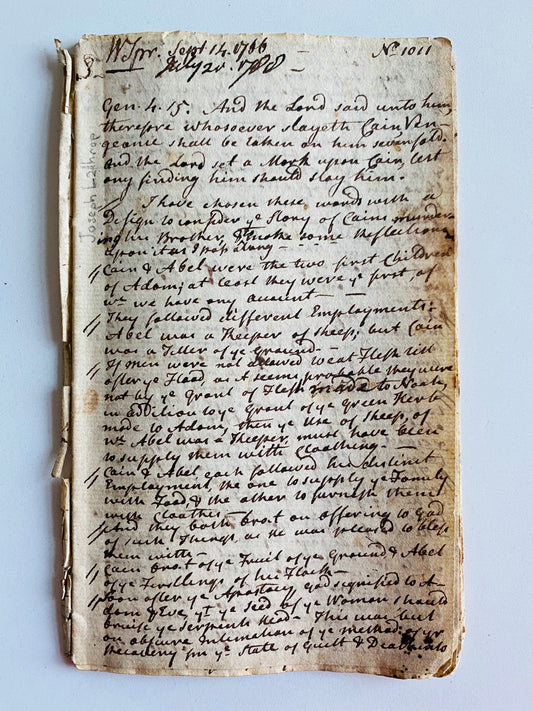 W Spr. Sept 14. 1786 No 1011
July 20. 1788
Joseph Lathrop
Gen. 4. 15. And the Lord said unto him,
therefore whosoever slayeth Cain Ven-
geance shall be taken on him sevenfold.
and the Lord set a Mark upon Cain, lest
any finding him should slay him.
I have chosen these words with a
Design to consider ye Story of Cains murder-
ing his Brother, & to make some Reflections
upon it as I pass along
Cain & Abel were the two first Children
of Adam; at least they were ye first, of
wm we have any account
They followed different Employments:
Abel was a Keeper of sheep, but Cain
was a Tiller of ye Ground
If men were not allowed to eat Flesh till
after ye Flood, as it seems probable they were
not by ye Grant of Flesh made to Noah,
in Addition to ye Grant of ye green Herb
made to Adam, then ye Use of Sheep, of
wh Abel was a Keeper, must have been
to supply them with Cloathing
Cain & Abel each followed his distinct
Employment, the one to supply ye Family
with Food, & the other to furnish them
with Cloathes
And they both brot an offering to God
of such Things as he was pleased to bless
them with
Cain brot of ye Fruit of ye Ground & Abel
of ye Firstlings of his Flock
Soon after ye Apostacy God signified to A-
dam & Eve, yt ye Seed of ye Woman should
bruise ye Serpents Head. This was but
an obscure Intimation of ye method of yr
Recovery fm ye State of Guilt & Death into